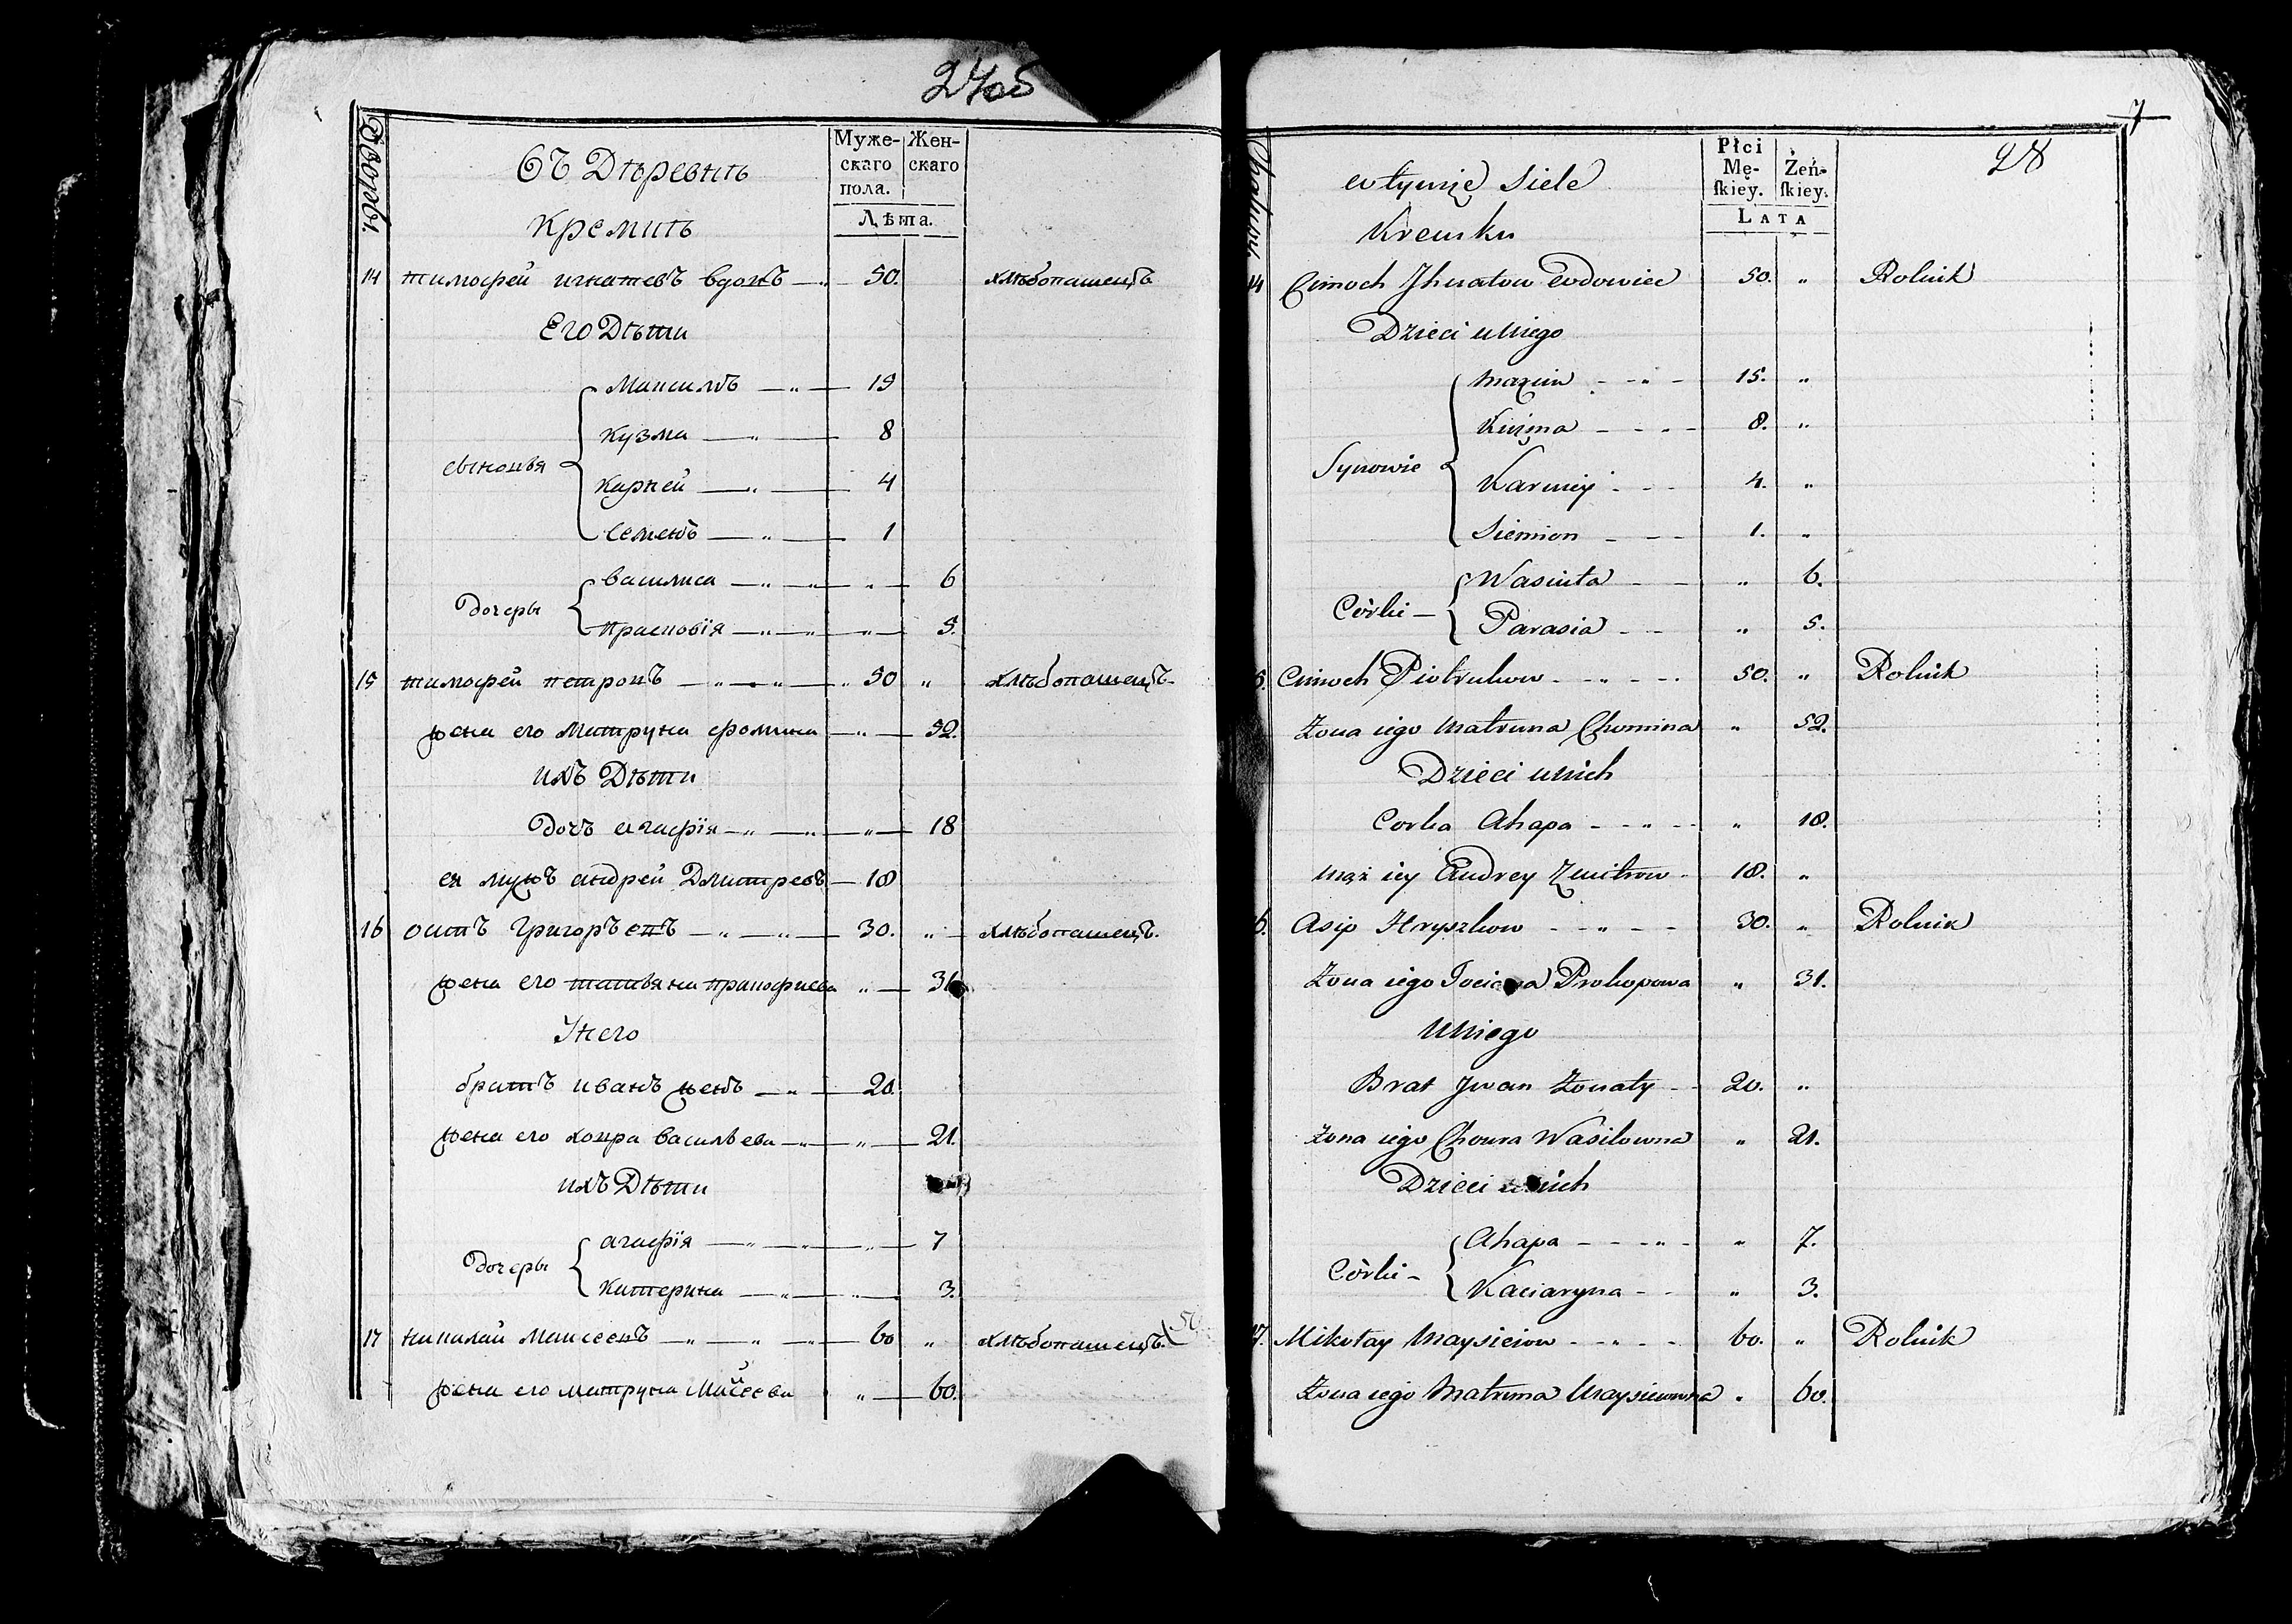 27об
Дворы.
въ Деревнѣ
Кремить
Муже-
скаго
пола.
Жен-
скаго
Лѣта.
14 тимофей игнатевъ вдовъ 50. хлѣбопашецъ
Его Дѣти
Максимъ 19
Кузма 8
сыновья
Карней 4
Семенъ 1
василиса „ 6
дочеры
прасковія „ 5.
15 тимофей петровъ „ 50 „ хлѣбопашецъ
жена его Матруна фомина „ 52.
ихъ Дѣти
дочъ агафія „ 18
ея мужъ андрей Дмитревъ 18
16 осипъ Григорьевъ 30. „ хлѣбопашецъ.
жена его татьяна пракофиева „ 31
У него
братъ иванъ женъ 20.
жена его хоvра василѣева „ 21.
ихъ Дѣти
агафія „ 7
дочеры
Катерина „ 3.
17 николай Моисеевъ 60 „ хлѣбопашецъ.
жена его матруна Мойсеева „ 60.
7
28
w tymże Siele
Kremku
Płci
Mę-
ſkiey.
Żeń-
ſkiey.
LATA
14 Cimoch Jhnatow Wdowiec 50. „ Rolnik
Dzieci u Niego
Maxim 15. „
Kuźma 8. „
Synowie
Karniey 4. „
Siemion 1. „
Wasiuta „ 6.
Córki
Parasia „ 5.
5. Cimoch Piotrukow 50. „ Rolnik
Żona iego Matruna Chomina „ 52.
Dzieci u Nich
Corka Ahapa „ 18.
mąż iey Andrey Zmitrow 18. „
6. Asip Hryszkow 30. „ Rolnik
Żona iego Prokopowa „ 31.
U Niego
Brat Jwan Żonaty 20. „
Żona iego Chowra Wasilowna „ 21.
Dzieci u Nich
Ahapa „ 7.
Córki
Kaciaryna „ 3.
17. Mikołay Maysieiow 60. „ Rolnik
Żona iego Matruna Maysiewna „ 60.